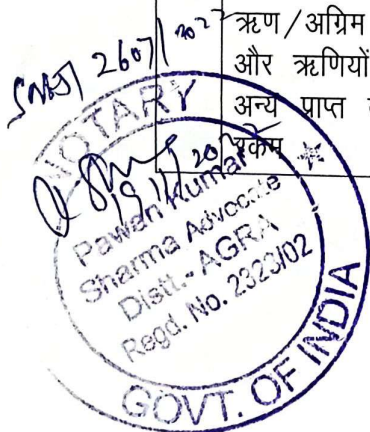 ऋण/अग्रिम
और ऋणियों
अन्य प्राप्त
रकम
2607/2022
NOTARY
Pawan Kumar
Sharma Advocate
Distt.-AGRA
Regd. No. 2323/02
GOVT. OF INDIA